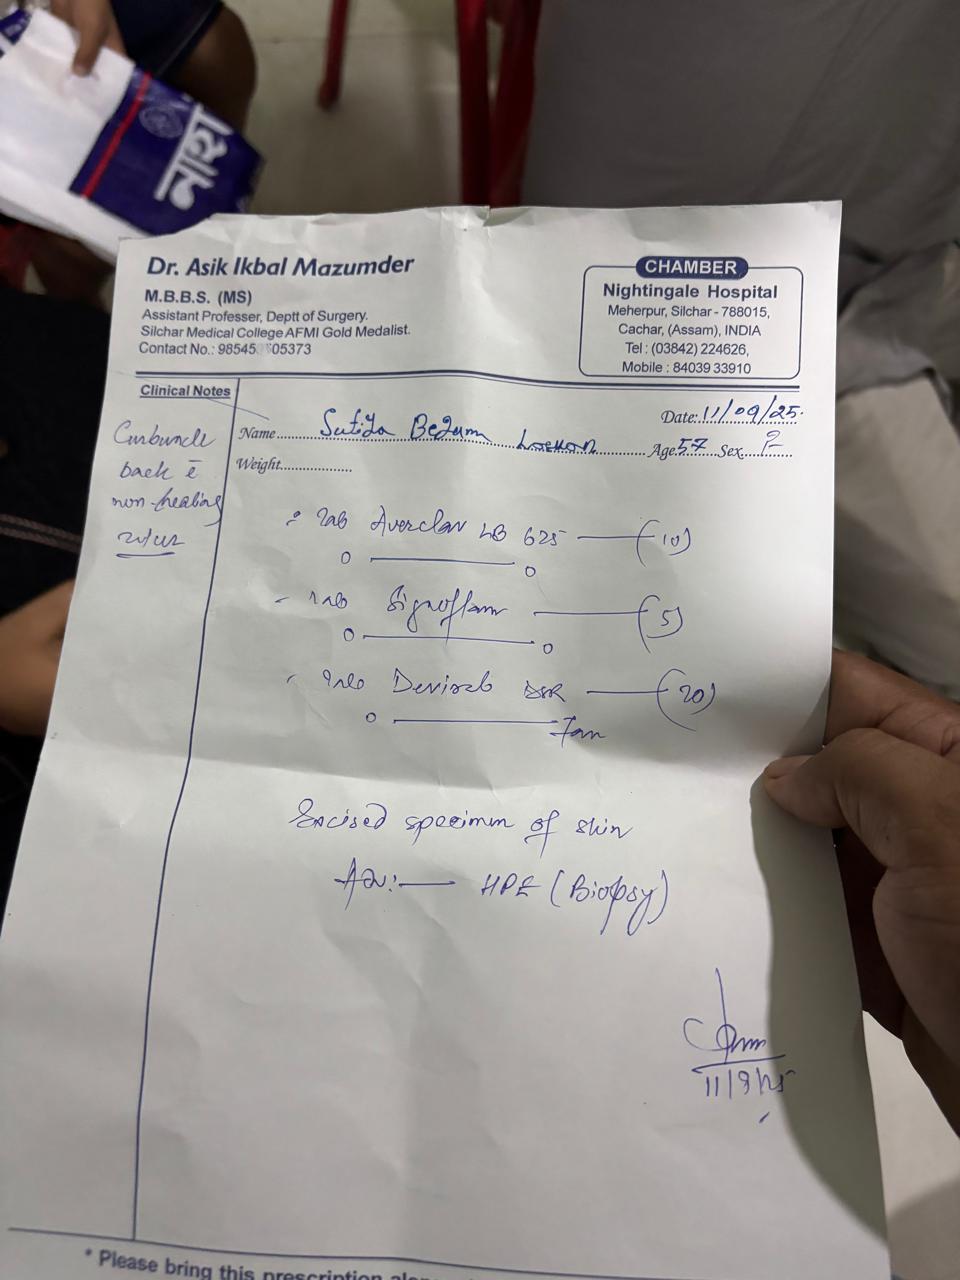 Dr. Asik Ikbal Mazumder
M.B.B.S. (MS)
Assistant Professer, Deptt of Surgery.
Silchar Medical College AFMI Gold Medalist.
Contact No.: 98545 05373
CHAMBER
Nightingale Hospital
Meherpur, Silchar - 788015,
Cachar, (Assam), INDIA
Tel : (03842) 224626,
Mobile : 84039 33910
Clinical Notes
Date: 11/09/25.
Name Begum Laskar Age 57 Sex
Weight
Carbuncle
back c̄
non-healing
ulcer
Tab 625 (10)
Tab Signoflam (5)
Tab DSR (20)
Excised specimen of skin
Adv:— HPE (Biopsy)
11/9/25
* Please bring this prescription